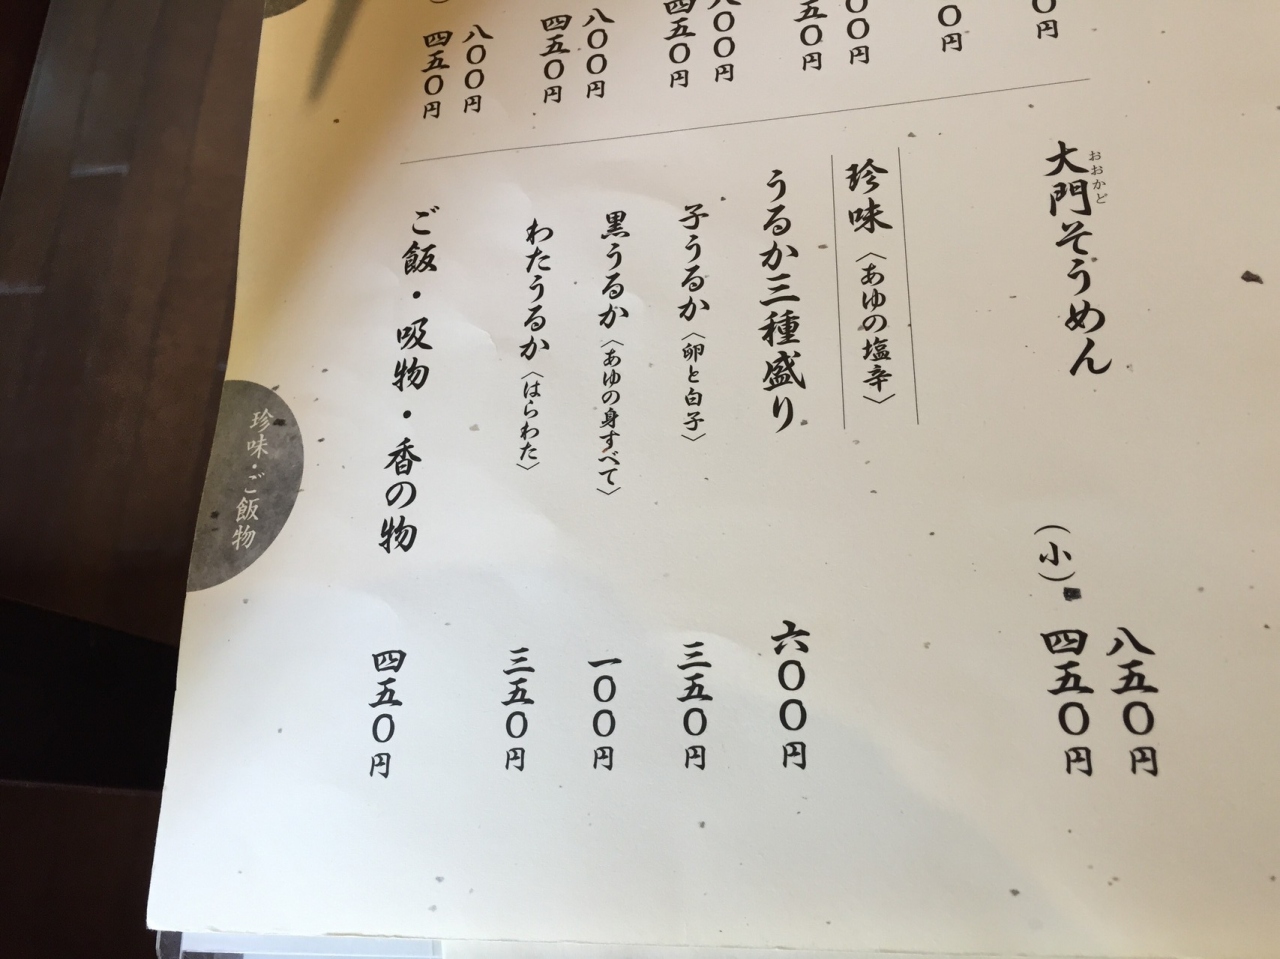 八〇〇円
四五〇円
八〇〇円
四五〇円
大門そうめん
おおかど
八五〇円
（小）四五〇円
珍味〈あゆの塩辛〉
うるか三種盛り 六〇〇円
子うるか〈卵と白子〉 三五〇円
黒うるか〈あゆの身すべて〉 一〇〇円
わたうるか〈はらわた〉 三五〇円
ご飯・吸物・香の物 四五〇円
珍味・ご飯物